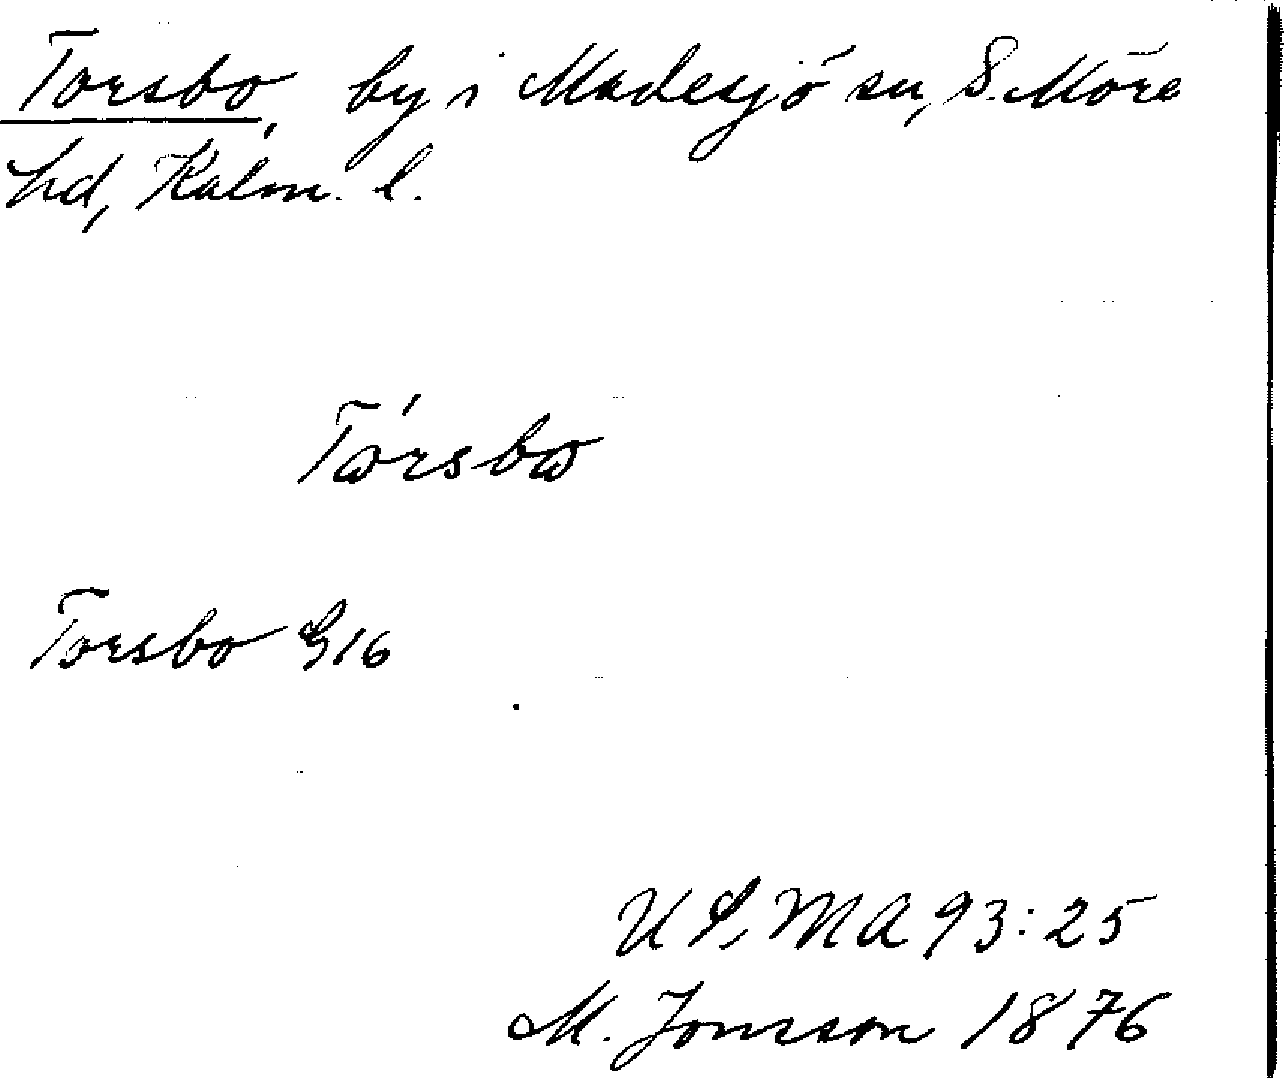 Torsbo, by i Madesjö sn, S. Möre
hd, Kalm. l.
Tɷ́rsbɷ
Torsbo G16
M. Jonsson 1876